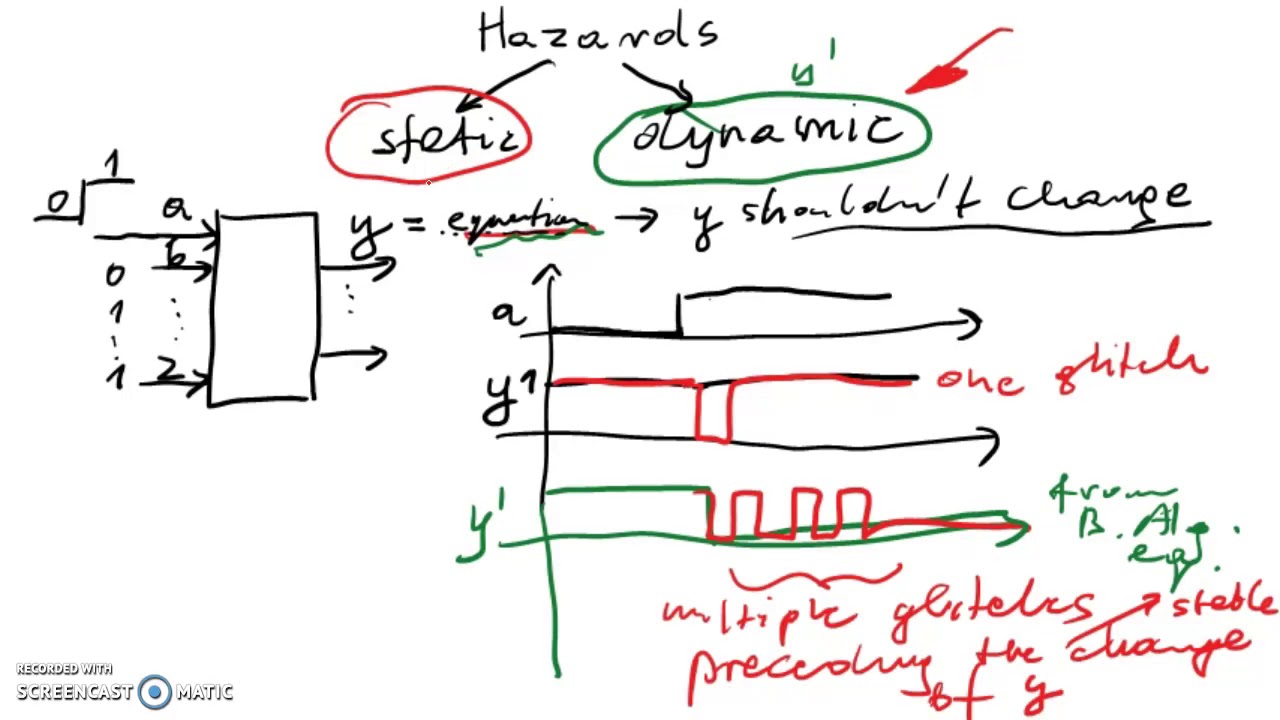 Hazards
y'
static
dynamic
0 1
a
y = equation → y shouldn't change
b
0
1
1
z
a
y 1
one glitch
y'
from
B. Al.
eq.
multiple glitches → stable
preceding the change
of y
RECORDED WITH
SCREENCAST MATIC